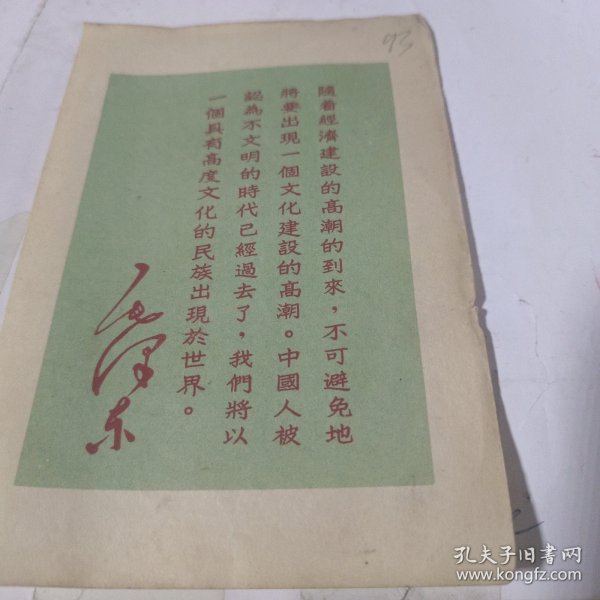 93
隨着經濟建設的高潮的到來，不可避免地
將要出現一個文化建設的高潮。中國人被
認為不文明的時代已經過去了，我們將以
一個具有高度文化的民族出現於世界。
毛澤東
孔夫子旧书网
www.kongfz.com